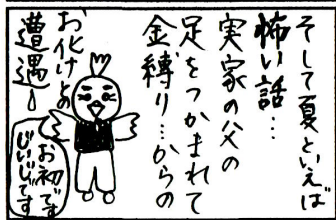 そして夏といえば
怖い話…
実家の父の
足をつかまれて
金縛り…からの
お化けとの
遭遇!
お初です
じぃじです